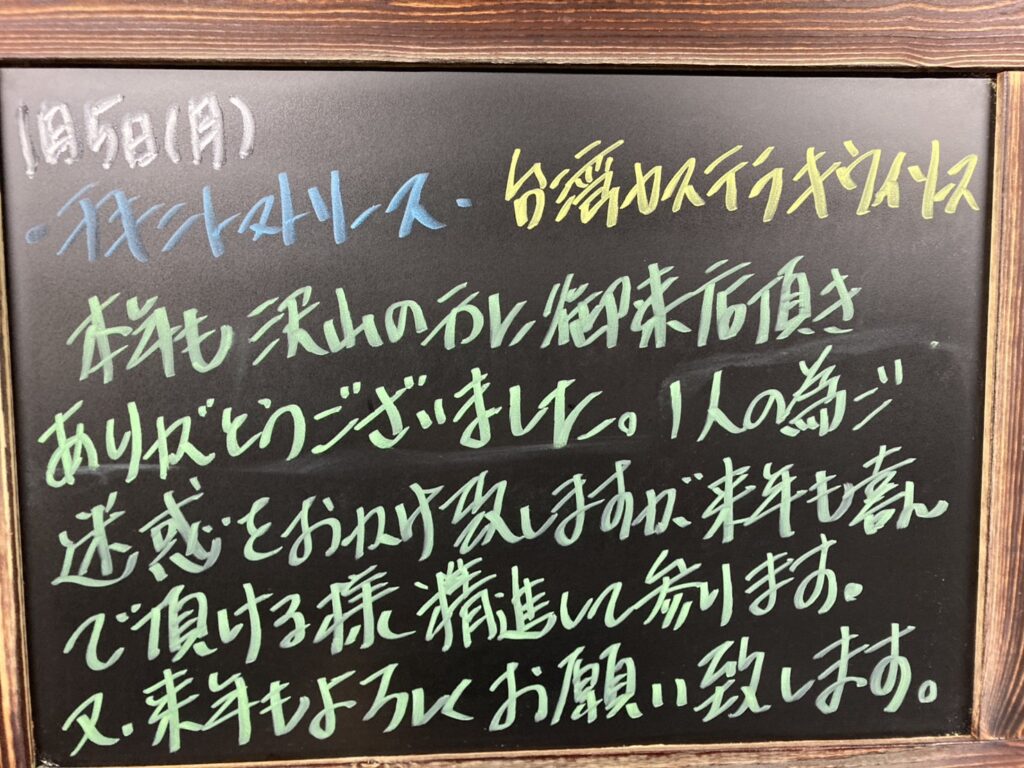 1月5日(月)
・チキントマトソース・ 台湾カステラキウイソース
本年も沢山の方に御来店頂き
ありがとうございました。1人の為ご
迷惑をおかけ致しますが、来年も喜ん
で頂ける様に精進して参ります。
又、来年もよろしくお願い致します。